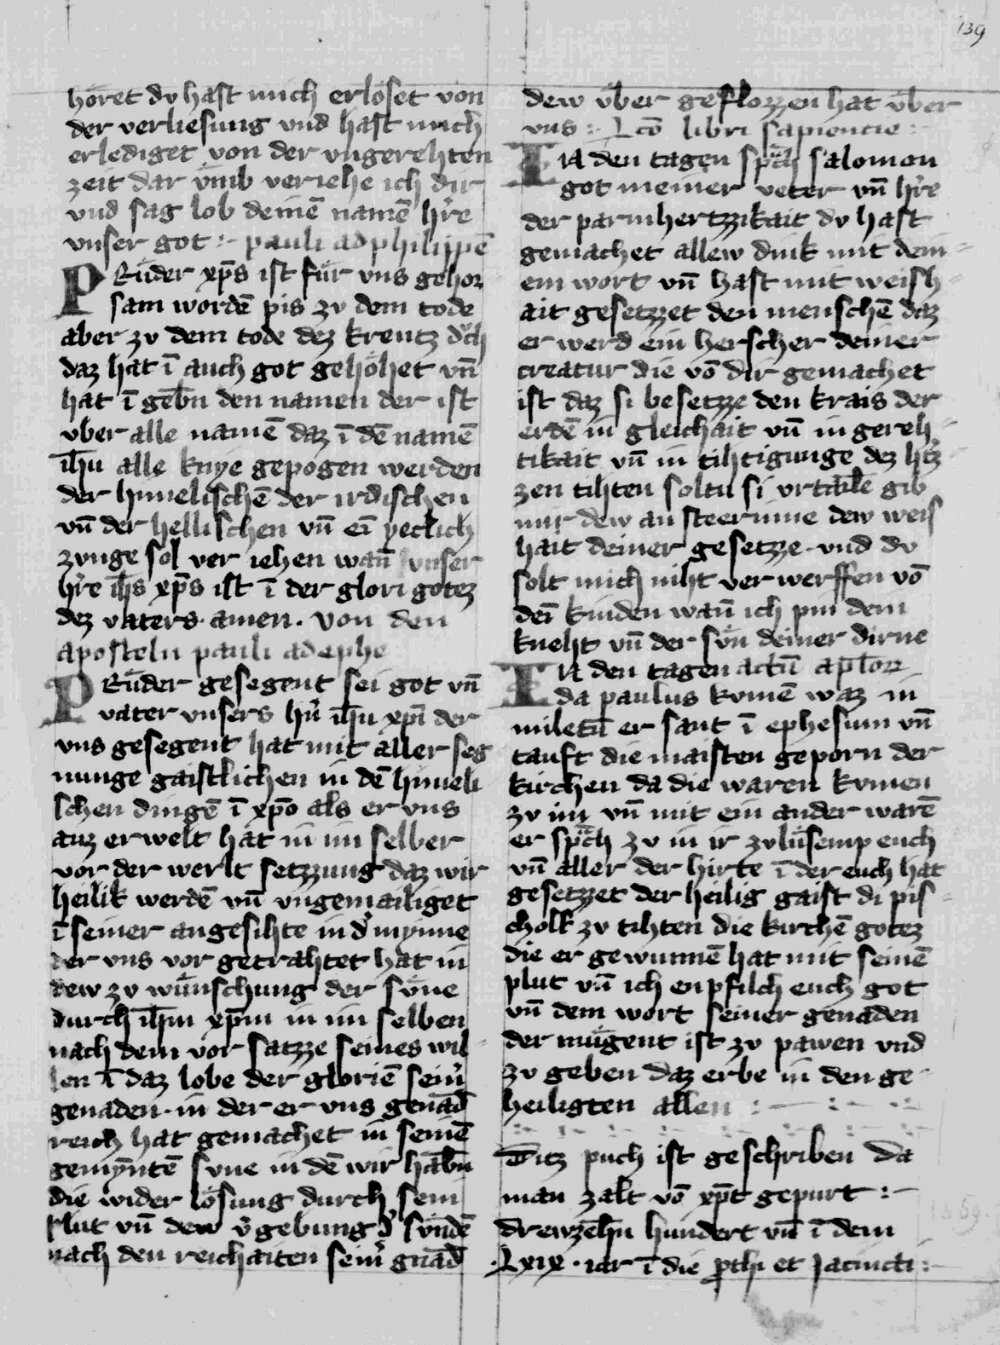 139
höret dv hast mich erlöset von
der verliesung vnd hast mich
erlediget von der vngerehten
zeit dar vmb veriehe ich dir
vnd sag lob deinē namē hr̄e
vnser got :· pauli ad philippē
PRüder xp̄s ist für vns gehor
sam wordē pis zv dem tode
aber zv dem tode dez kreutz dͮch
daz hat ī auch got gehöhet vn̄
hat ī gebn̄ den namen der ist
vber alle namē daz ī dē namē
ih̄u alle knye gepogen werden
der himelischē der irdischen
vn̄ der hellischen vn̄ eī yeclich
zvnge sol ver iehen wan̄ vnser
hr̄e ih̄s xp̄s ist ī der glori gotez
dez vaters· amen· von den
aposteln pauli ad ephe
PRüder gesegent sei got vn̄
vater vnsers hr̄n ih̄u xp̄i der
vns gesegent hat mit aller seg
nunge gaistlichen in dē himeli
schen dingē ī xp̄o als er vns
auz erwelt hat in im selber
vor der werlt setzzung daz wir
heilik werdē vn̄ vngemailiget
ī seiner angesihte in dˀ mynne
der vns vor getrahtet hat in
dew zv wünschung der svne
durch ih̄m xp̄m in im selben
nach dem vor satzze seines wil
len ī daz lobe der gloriē seinˀ
genaden· in der er vns genad̄
reich hat gemachet in seinē
gemȳntē svne in dē wir habn̄
die wider lösung durch sein
plut vn̄ dew vˀgebung dˀ svndē
nach den reichaiten seinˀ gnad̄
dew über geflozzen hat über
vns :· Lcō libri sapiencie :·
IN den tagen spͣch salomon
got meiner veter vn̄ hr̄e
der parmhertzzikait dv hast
gemachet allew dink mit dein
em wort vn̄ hast mit weish
ait gesetzzet den menschē daz
er werd ein herscher deiner
creatur die vō dir gemachet
ist daz si besetzze den krais der
erdē in gleichait vn̄ in gereh
tikait vn̄ in tihtigunge dez hˀtz
zen tihten soltu si vrtailē gib
mir dew an steerinne dew weis
hait deiner gesetzze· vnd dv
solt mich niht verwerffen vō
dein̄ kinden wan̄ ich pin dein
kneht vn̄ der svn deiner dirne
IN den tagen actū apl̄or
da paulus kvmē waz in
miletū er sant ī ephesum vn̄
tauft die maisten geporn der
kirchen da die waren kvmen
zv im vn̄ mit ein ander warē
er spͣch zv in ir zvlüsemp euch
vn̄ aller der hirte ī der euch hat
gesetzzet der heilig gaist di pis
cholf zv tihten die kirchē gotez
die er gewunnē hat mit seinē
plut vn̄ ich enpfilch euch got
vn̄ dem wort seiner genaden
der mügent ist zv pawen vnd
zv geben daz erbe in den ge
heiligten allen :·
Ditz puch ist geschriben da
man zalt vō xp̄t gepurt :·
drewzehn̄ hundert vn̄ ī dem
·Lxix· iar ī die ꝓthi et Jacincti :·